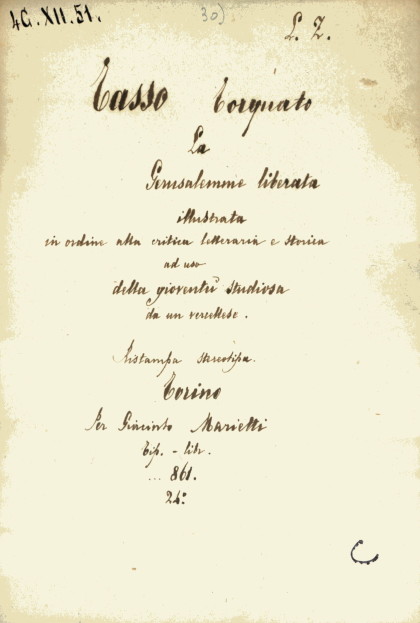 4G.XII.51.
30)
L. Z.
Tasso Torquato
La
Gerusalemme liberata
illustrata
in ordine alla critica letteraria e storica
ad uso
della gioventù studiosa
da un vercellese.
Ristampa stereotipa.
Torino
Per Giacinto Marietti
Tip. - libr.
... 861.
24.º